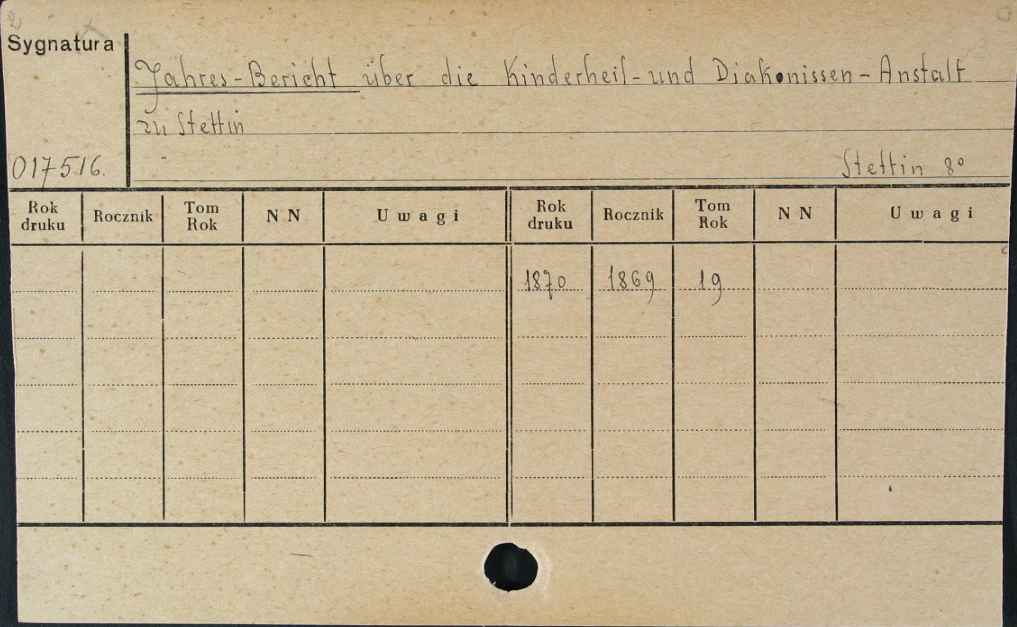 Sygnatura
Jahres-Bericht über die Kinderheil- und Diakonissen-Anstalt
zu Stettin
017516.
Stettin 8°
Rok druku Rocznik Tom Rok N N Uwagi Rok druku Rocznik Tom Rok N N Uwagi
1870 1869 19